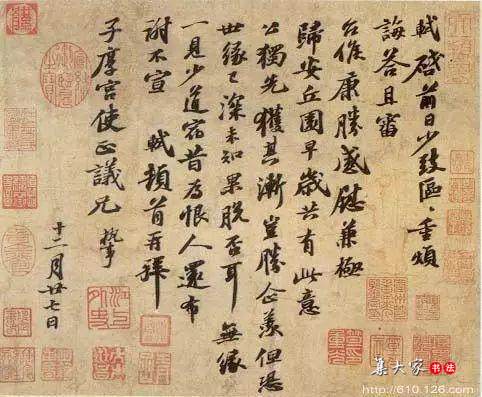 軾啟前日少致區區重煩
誨答且審
台候康勝感慰兼極
歸安丘園早歲共有此意
公獨先獲其漸豈勝企羨但恐
世緣已深未知果脫否耳無緣
一見少道宿昔為恨人還布
謝不宣 軾頓首再拜
子厚宮使正議兄 執事
十二月廿七日
江上外史
集大家书法
http://610.126.com